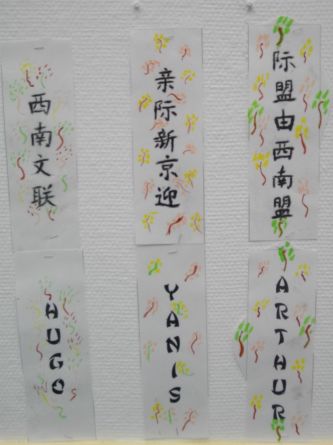 西南文联
亲际新京迎
际盟由西南盟
HUGO
YANIS
ARTHUR